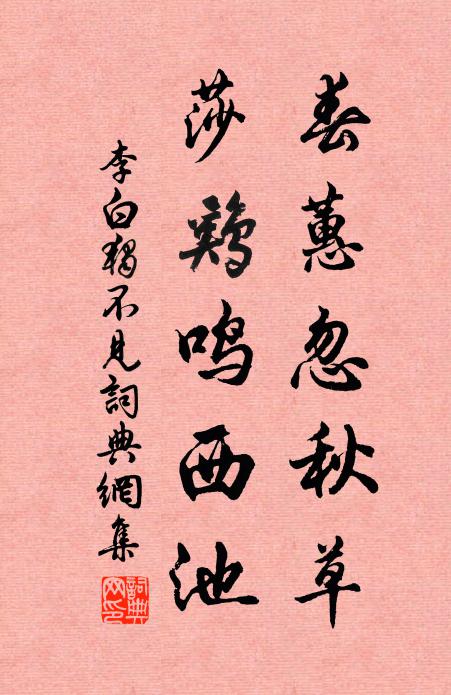 春蕙忽秋草
莎鷄鳴西池
李白獨不見詞典網集
詞典網印